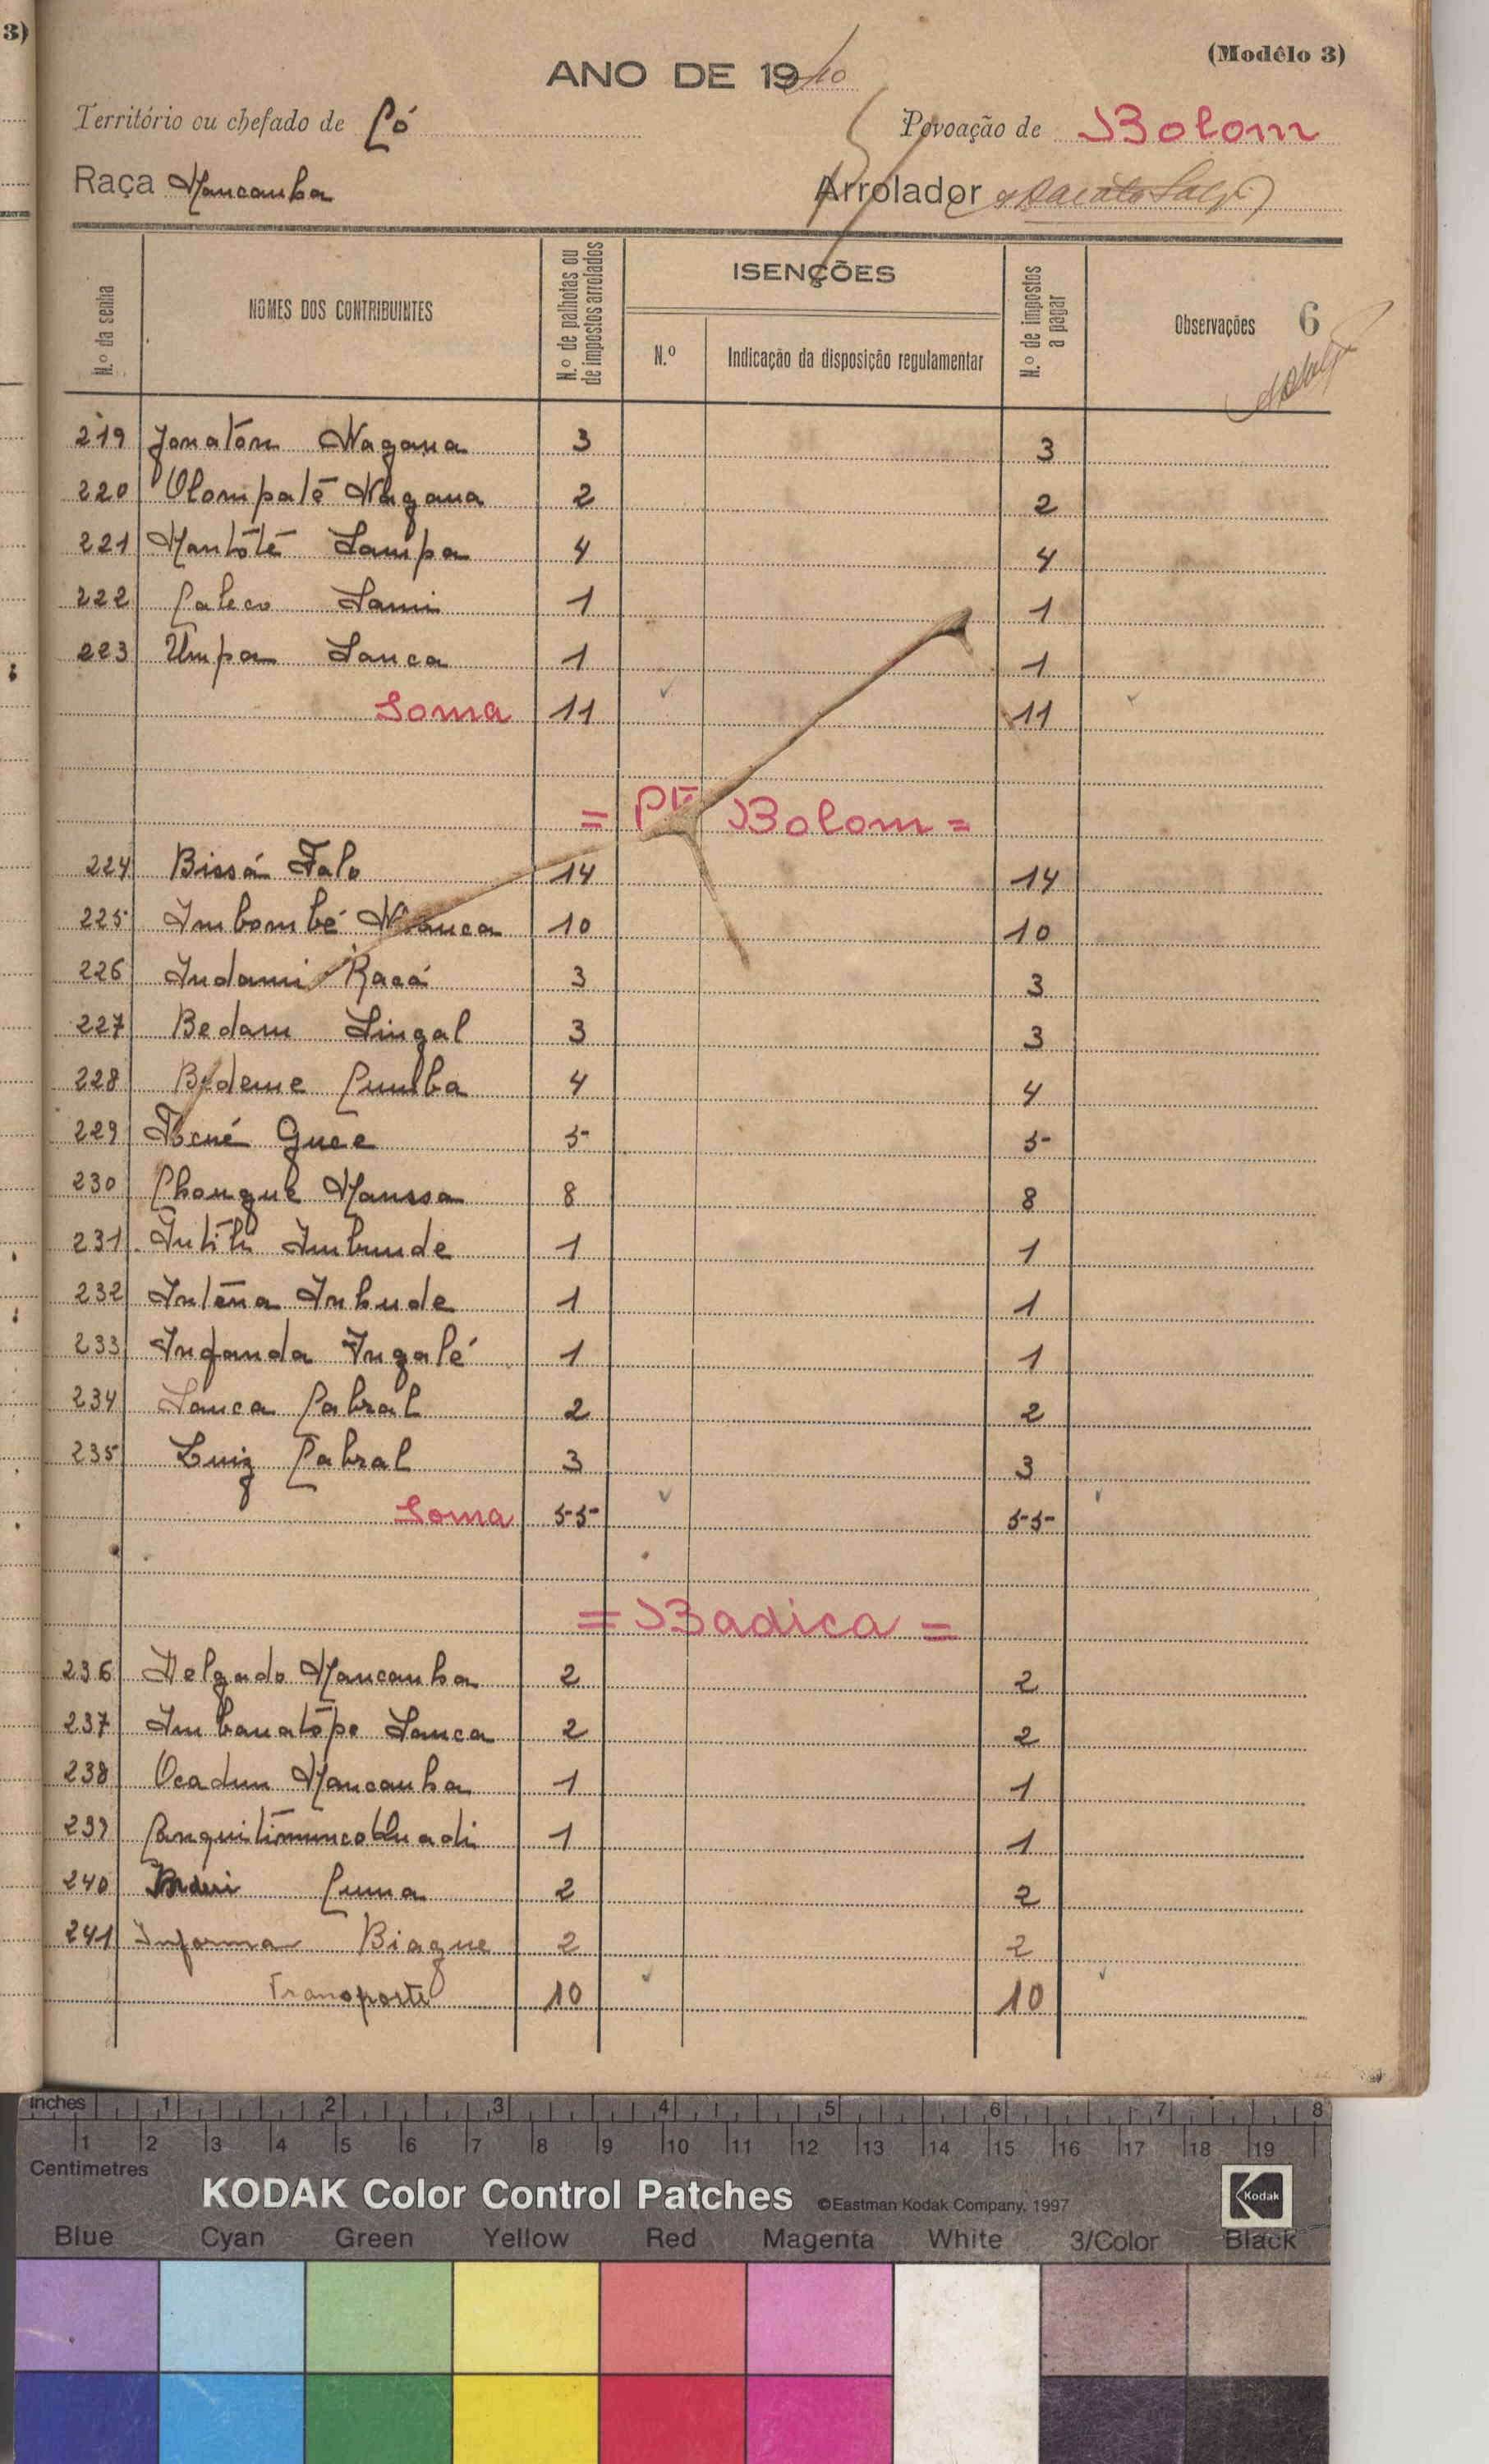 3)
(Modêlo 3)
ANO DE 1940
Território ou chefado de Có
Povoação de Bolom
Raça Mancanha
Arrolador
N.º da senha
NOMES DOS CONTRIBUINTES
N.º de palhotas ou de impostos arrolados
ISENÇÕES
N.º
Indicação da disposição regulamentar
N.º de impostos a pagar
Observações
6
219 Jonatón Nagana 3 3
220 Olompaté Nagana 2 2
221 Mantóté Sampa 4 4
222 Caleco Sami 1 1
223 Umpa Sanca 1 1
Soma 11 11
= Bolom =
224 Bissá Falo 14 14
225 Imbombé 10 10
226 Indami Racá 3 3
227 Bedam Lingal 3 3
228 Bedeme Cumba 4 4
229 Guee 5 5
230 Chongue Manssa 8 8
231 Intiti Imbunde 1 1
232 Intena Inbude 1 1
233 Infanda Ingalé 1 1
234 Sanca Cabral 2 2
235 Luiz Cabral 3 3
Soma 55 55
= Badica =
236 Delgado Mancanha 2 2
237 Imbanatope Sanca 2 2
238 Ocadun Mancanha 1 1
239 1 1
240 Cuma 2 2
241 Informa Biague 2 2
Transporte 10 10
inches 1 2 3 4 5 6 7 8
1 2 3 4 5 6 7 8 9 10 11 12 13 14 15 16 17 18 19
Centimetres
KODAK Color Control Patches ©Eastman Kodak Company, 1997
Kodak
Blue Cyan Green Yellow Red Magenta White 3/Color Black